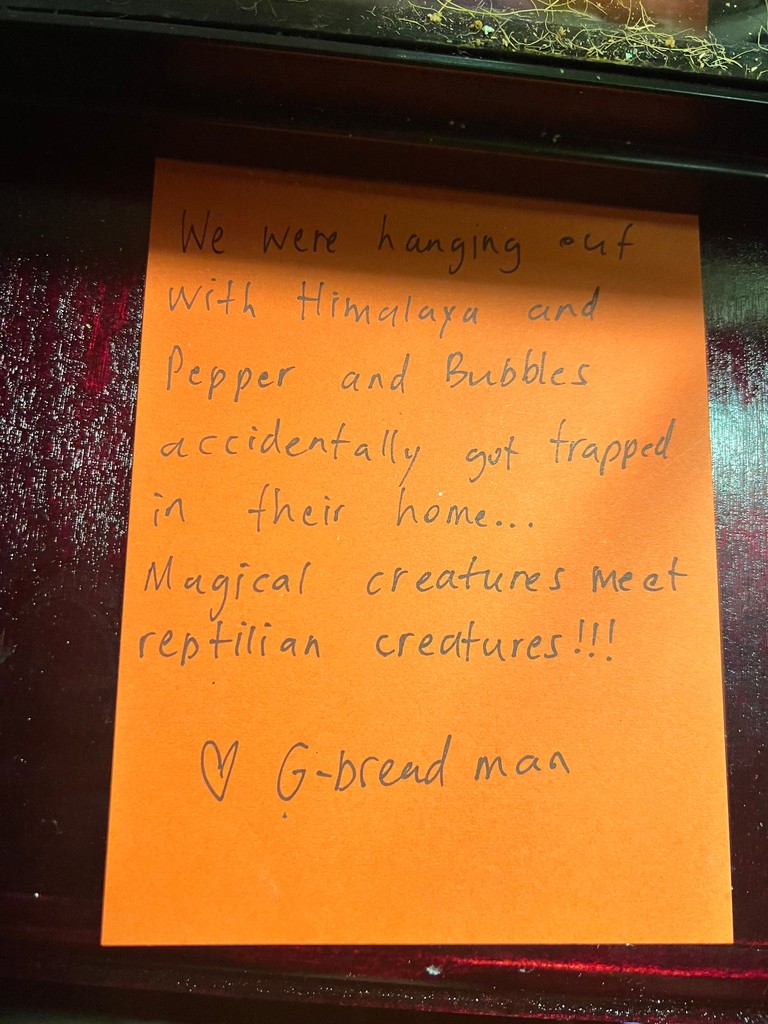 We were hanging out
with Himalaya and
Pepper and Bubbles
accidentally got trapped
in their home...
Magical creatures meet
reptilian creatures!!!
♡ G-bread man